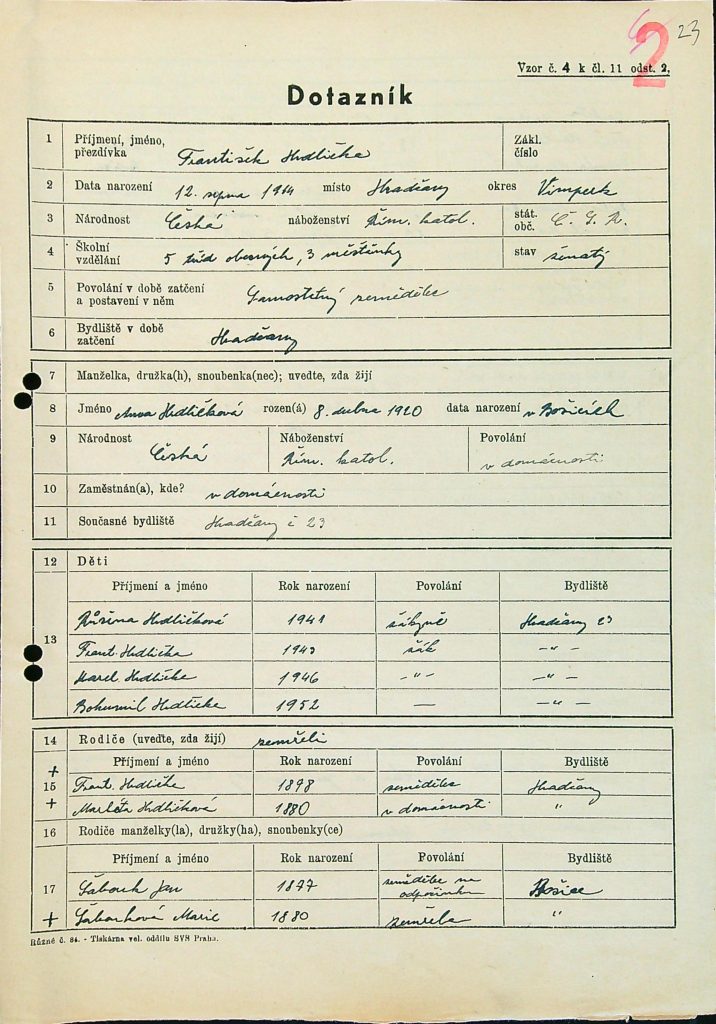 23
2
Vzor č. 4 k čl. 11 odst. 2.
Dotazník
1 Příjmení, jméno, přezdívka František Hrdlička Zákl. číslo
2 Data narození 12. srpna 1914 místo Hradčany okres Vimperk
3 Národnost Česká náboženství Řím. katol. stát. obč. Č. S. R.
4 Školní vzdělání 5 tříd obecných, 3 měšťanky stav ženatý
5 Povolání v době zatčení a postavení v něm Samostatný zemědělec
6 Bydliště v době zatčení Hradčany
7 Manželka, družka(h), snoubenka(nec); uveďte, zda žijí
8 Jméno Anna Hrdličková rozen(á) 8. dubna 1920 data narození v Bošicích
9 Národnost Česká Náboženství Řím. katol. Povolání v domácnosti
10 Zaměstnán(a), kde? v domácnosti
11 Současné bydliště Hradčany č 23
12 Děti
Příjmení a jméno Rok narození Povolání Bydliště
13
Růžena Hrdličková 1941 žákyně Hradčany 23
Frant. Hrdlička 1943 žák -"-
Karel Hrdlička 1946 -"- -"-
Bohumil Hrdlička 1952 — -"-
14 Rodiče (uveďte, zda žijí) zemřeli
Příjmení a jméno Rok narození Povolání Bydliště
+ 15 Frant. Hrdlička 1898 zemědělec Hradčany
+ Hrdličková 1880 v domácnosti "
16 Rodiče manželky(la), družky(ha), snoubenky(ce)
Příjmení a jméno Rok narození Povolání Bydliště
17 Jan 1877 zemědělec na odpočinku Bošice
+ Marie 1880 zemřela "
Různé č. 84. - Tiskárna vel. oddílu SVS Praha.